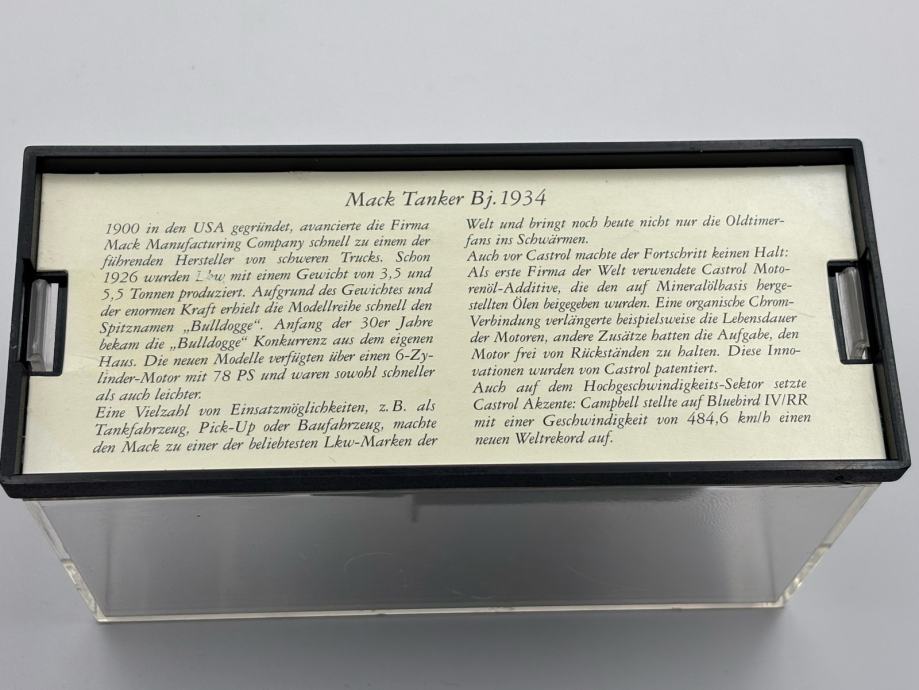 Mack Tanker Bj. 1934
1900 in den USA gegründet, avancierte die Firma
Mack Manufacturing Company schnell zu einem der
führenden Hersteller von schweren Trucks. Schon
1926 wurden Lkw mit einem Gewicht von 3,5 und
5,5 Tonnen produziert. Aufgrund des Gewichtes und
der enormen Kraft erhielt die Modellreihe schnell den
Spitznamen „Bulldogge“. Anfang der 30er Jahre
bekam die „Bulldogge“ Konkurrenz aus dem eigenen
Haus. Die neuen Modelle verfügten über einen 6-Zy-
linder-Motor mit 78 PS und waren sowohl schneller
als auch leichter.
Eine Vielzahl von Einsatzmöglichkeiten, z. B. als
Tankfahrzeug, Pick-Up oder Baufahrzeug, machte
den Mack zu einer der beliebtesten Lkw-Marken der
Welt und bringt noch heute nicht nur die Oldtimer-
fans ins Schwärmen.
Auch vor Castrol machte der Fortschritt keinen Halt:
Als erste Firma der Welt verwendete Castrol Moto-
renöl-Additive, die den auf Mineralölbasis herge-
stellten Ölen beigegeben wurden. Eine organische Chrom-
Verbindung verlängerte beispielsweise die Lebensdauer
der Motoren, andere Zusätze hatten die Aufgabe, den
Motor frei von Rückständen zu halten. Diese Inno-
vationen wurden von Castrol patentiert.
Auch auf dem Hochgeschwindigkeits-Sektor setzte
Castrol Akzente: Campbell stellte auf Bluebird IV/RR
mit einer Geschwindigkeit von 484,6 km/h einen
neuen Weltrekord auf.